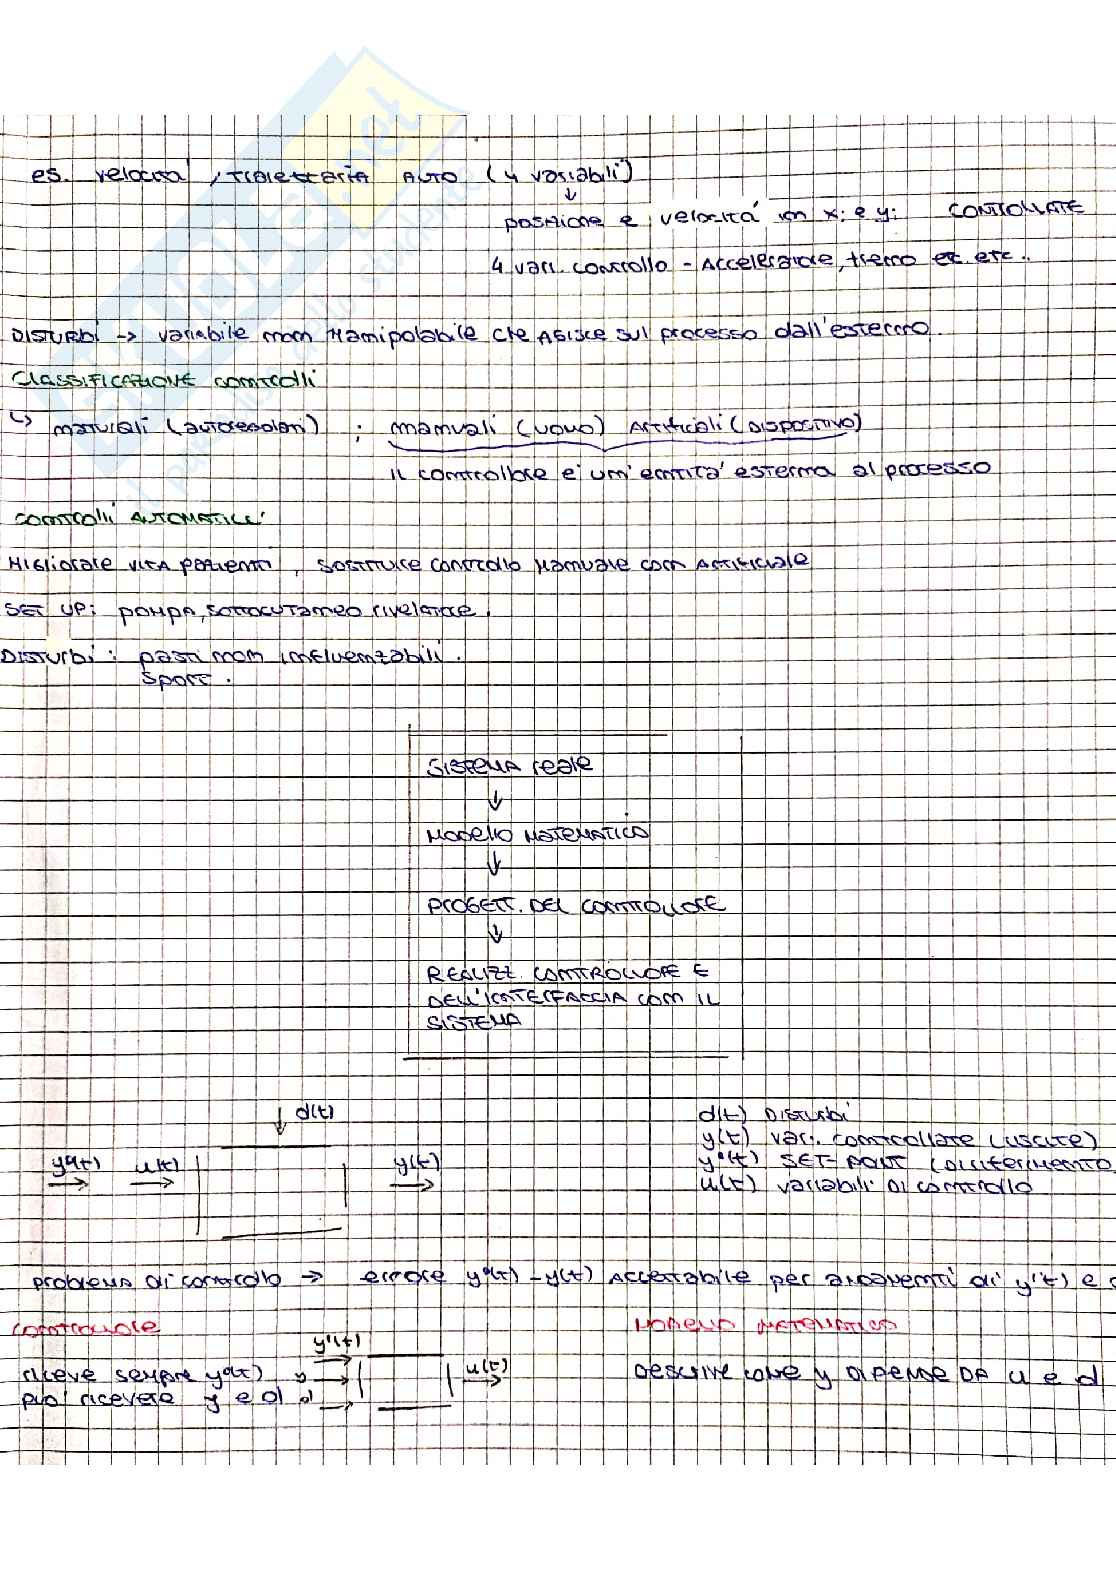 es. velocità, traiettoria AUTO (4 variabili)
↓
posizione e velocità in xi e yi CONTROLLATE
4 vari. controllo - Acceleratore, freno ec etc..
DISTURBI -> variabile non manipolabile che AGISCE sul processo dall'esterno.
CLASSIFICAZIONE controlli
↳ naturali (autoregolati) ; manuali (UOMO) Artificiali (DISPOSITIVO)
IL controllore e' un'entità esterna al processo
controlli AUTOMATICI
Migliorare VITA pazienti, SOSTITUISCE controllo Manuale con ARTIFICIALE
SET UP: POMPA, SOTTOCUTANEO rivelatore.
DISTURBI: pasti non influenzabili.
sport.
SISTEMA reale
↓
MODELLO MATEMATICO
↓
PROGETT. DEL CONTROLLORE
↓
REALIZZ. CONTROLLORE E
DELL'INTERFACCIA CON IL
SISTEMA
↓ d(t)
y°(t) u(t) y(t)
d(t) DISTURBI
y(t) vari. controllate (USCITE)
y°(t) SET-POINT (o riferimento
u(t) variabili DI controllo
problema di controllo -> errore y°(t) - y(t) ACCETTABILE per andamenti di y°(t) e
controllore
MODELLO MATEMATICO
y°(t)
riceve sempre y°(t) y u(t)
può ricevere y e d d
DESCRIVE COME y DIPENDE DA u e d